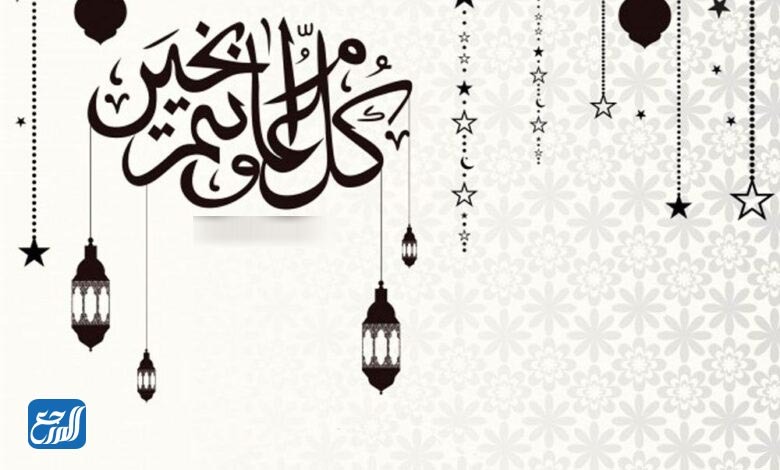 كُل عام وأنتم بخير
المرجع